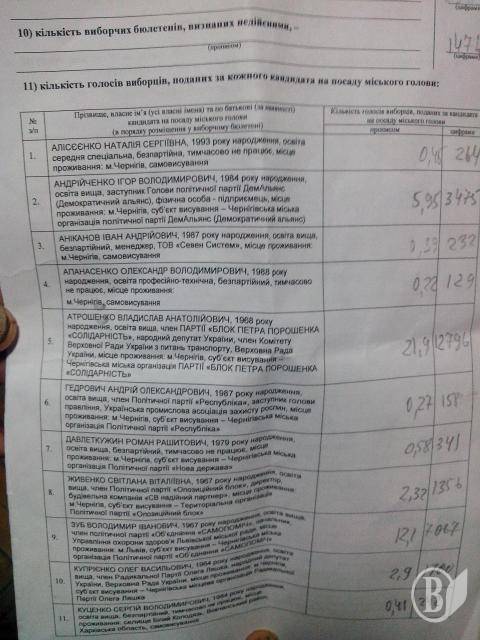 10) кількість виборчих бюлетенів, визнаних недійсними, –
(прописом)
(цифрами)
1471
(цифрами)
11) кількість голосів виборців, поданих за кожного кандидата на посаду міського голови:
№ з/п
Прізвище, власне ім'я (усі власні імена) та по батькові (за наявності)
кандидата на посаду міського голови
(в порядку розміщення у виборчому бюлетені)
Кількість голосів виборців, поданих за кандидата
на посаду міського голови
прописом
цифрами
1.
АЛІСЄЄНКО НАТАЛІЯ СЕРГІЇВНА, 1993 року народження, освіта
середня спеціальна, безпартійна, тимчасово не працює, місце
проживання: м.Чернігів, самовисування
0,45 264
2.
АНДРІЙЧЕНКО ІГОР ВОЛОДИМИРОВИЧ, 1984 року народження,
освіта вища, заступник Голови політичної партії ДемАльянс
(Демократичний альянс), фізична особа - підприємець, місце
проживання: м.Чернігів, суб'єкт висування – Чернігівська міська
організація політичної партії ДемАльянс (Демократичний альянс)
5,95 3475
3.
АНІКАНОВ ІВАН АНДРІЙОВИЧ, 1987 року народження, освіта вища,
безпартійний, менеджер, ТОВ «Севен Систем», місце проживання:
м.Чернігів, самовисування
0,39 232
4.
АПАНАСЕНКО ОЛЕКСАНДР ВОЛОДИМИРОВИЧ, 1988 року
народження, освіта професійно-технічна, безпартійний, тимчасово
не працює, місце проживання:
м.Чернігів, самовисування
0,22 129
5.
АТРОШЕНКО ВЛАДИСЛАВ АНАТОЛІЙОВИЧ, 1968 року
народження, освіта вища, член ПАРТІЇ «БЛОК ПЕТРА ПОРОШЕНКА
«СОЛІДАРНІСТЬ», народний депутат України, член Комітету
Верховної Ради України з питань транспорту, Верховна Рада
України, місце проживання: м.Чернігів, суб'єкт висування –
Чернігівська міська організація ПАРТІЇ «БЛОК ПЕТРА ПОРОШЕНКА
«СОЛІДАРНІСТЬ»
21,9 12796
6.
ГЕДРОВИЧ АНДРІЙ ОЛЕКСАНДРОВИЧ, 1967 року народження,
освіта вища, член Політичної партії «Республіка», заступник голови
правління, Українська промислова асоціація захисту рослин, місце
проживання: м.Чернігів, суб'єкт висування – Чернігівська міська
Політичної партії «Республіка»
0,27 158
7.
ДАВЛЕТКУЖИН РОМАН РАШИТОВИЧ, 1979 року народження,
освіта вища, безпартійний, тимчасово не працює, місце
проживання: м.Чернігів, суб'єкт висування – Чернігівська міська
організація Політичної партії «Нова держава»
0,58 341
8.
ЖИВЕНКО СВІТЛАНА ВІТАЛІЇВНА, 1967 року народження, освіта
вища, член Політичної партії «Опозиційний блок», директор,
будівельна компанія «СВ надійний партнер», місце проживання:
м.Чернігів, суб'єкт висування – Територіальна організація
Політичної партії «Опозиційний блок»
2,32 1356
9.
ЗУБ ВОЛОДИМИР ІВАНОВИЧ, 1967 року народження, освіта вища,
член політичної партії «Об'єднання «САМОПОМІЧ», начальник,
Управління охорони здоров'я Львівської міської ради, місце
проживання: м.Львів, суб'єкт висування – Чернігівська міська
організація Політичної партії «Об'єднання «САМОПОМІЧ»
12,1 7067
10.
КУПРІЄНКО ОЛЕГ ВАСИЛЬОВИЧ, 1964 року народження, освіта
вища, член Радикальної Партії Олега Ляшка, народний депутат
України, Верховна Рада України, місце проживання:
суб'єкт висування – Чернігівська міська організація Радикальної
Партії Олега Ляшка
2,9
11.
КУЦЕНКО СЕРГІЙ ВОЛОДИМИРОВИЧ, 1984 року народження,
освіта вища, безпартійний, тимчасово не працює, місце
проживання: селище Білий Колодязь, Вовчанський район,
Харківська область, самовисування
0,41
В